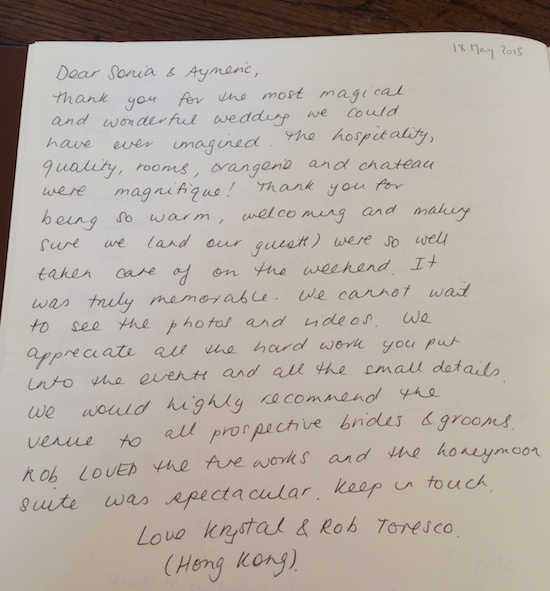 18 May 2015
Dear Sonia & Aymeric,
Thank you for the most magical
and wonderful wedding we could
have ever imagined. The hospitality,
quality, rooms, orangerie and chateau
were magnifique! Thank you for
being so warm, welcoming and making
sure we (and our guests) were so well
taken care of on the weekend. It
was truly memorable. We cannot wait
to see the photos and videos. We
appreciate all the hard work you put
into the events and all the small details.
We would highly recommend the
venue to all prospective brides & grooms.
Rob LOVED the fireworks and the honeymoon
suite was spectacular. Keep in touch.
Love Krystal & Rob Toresco.
(Hong Kong).